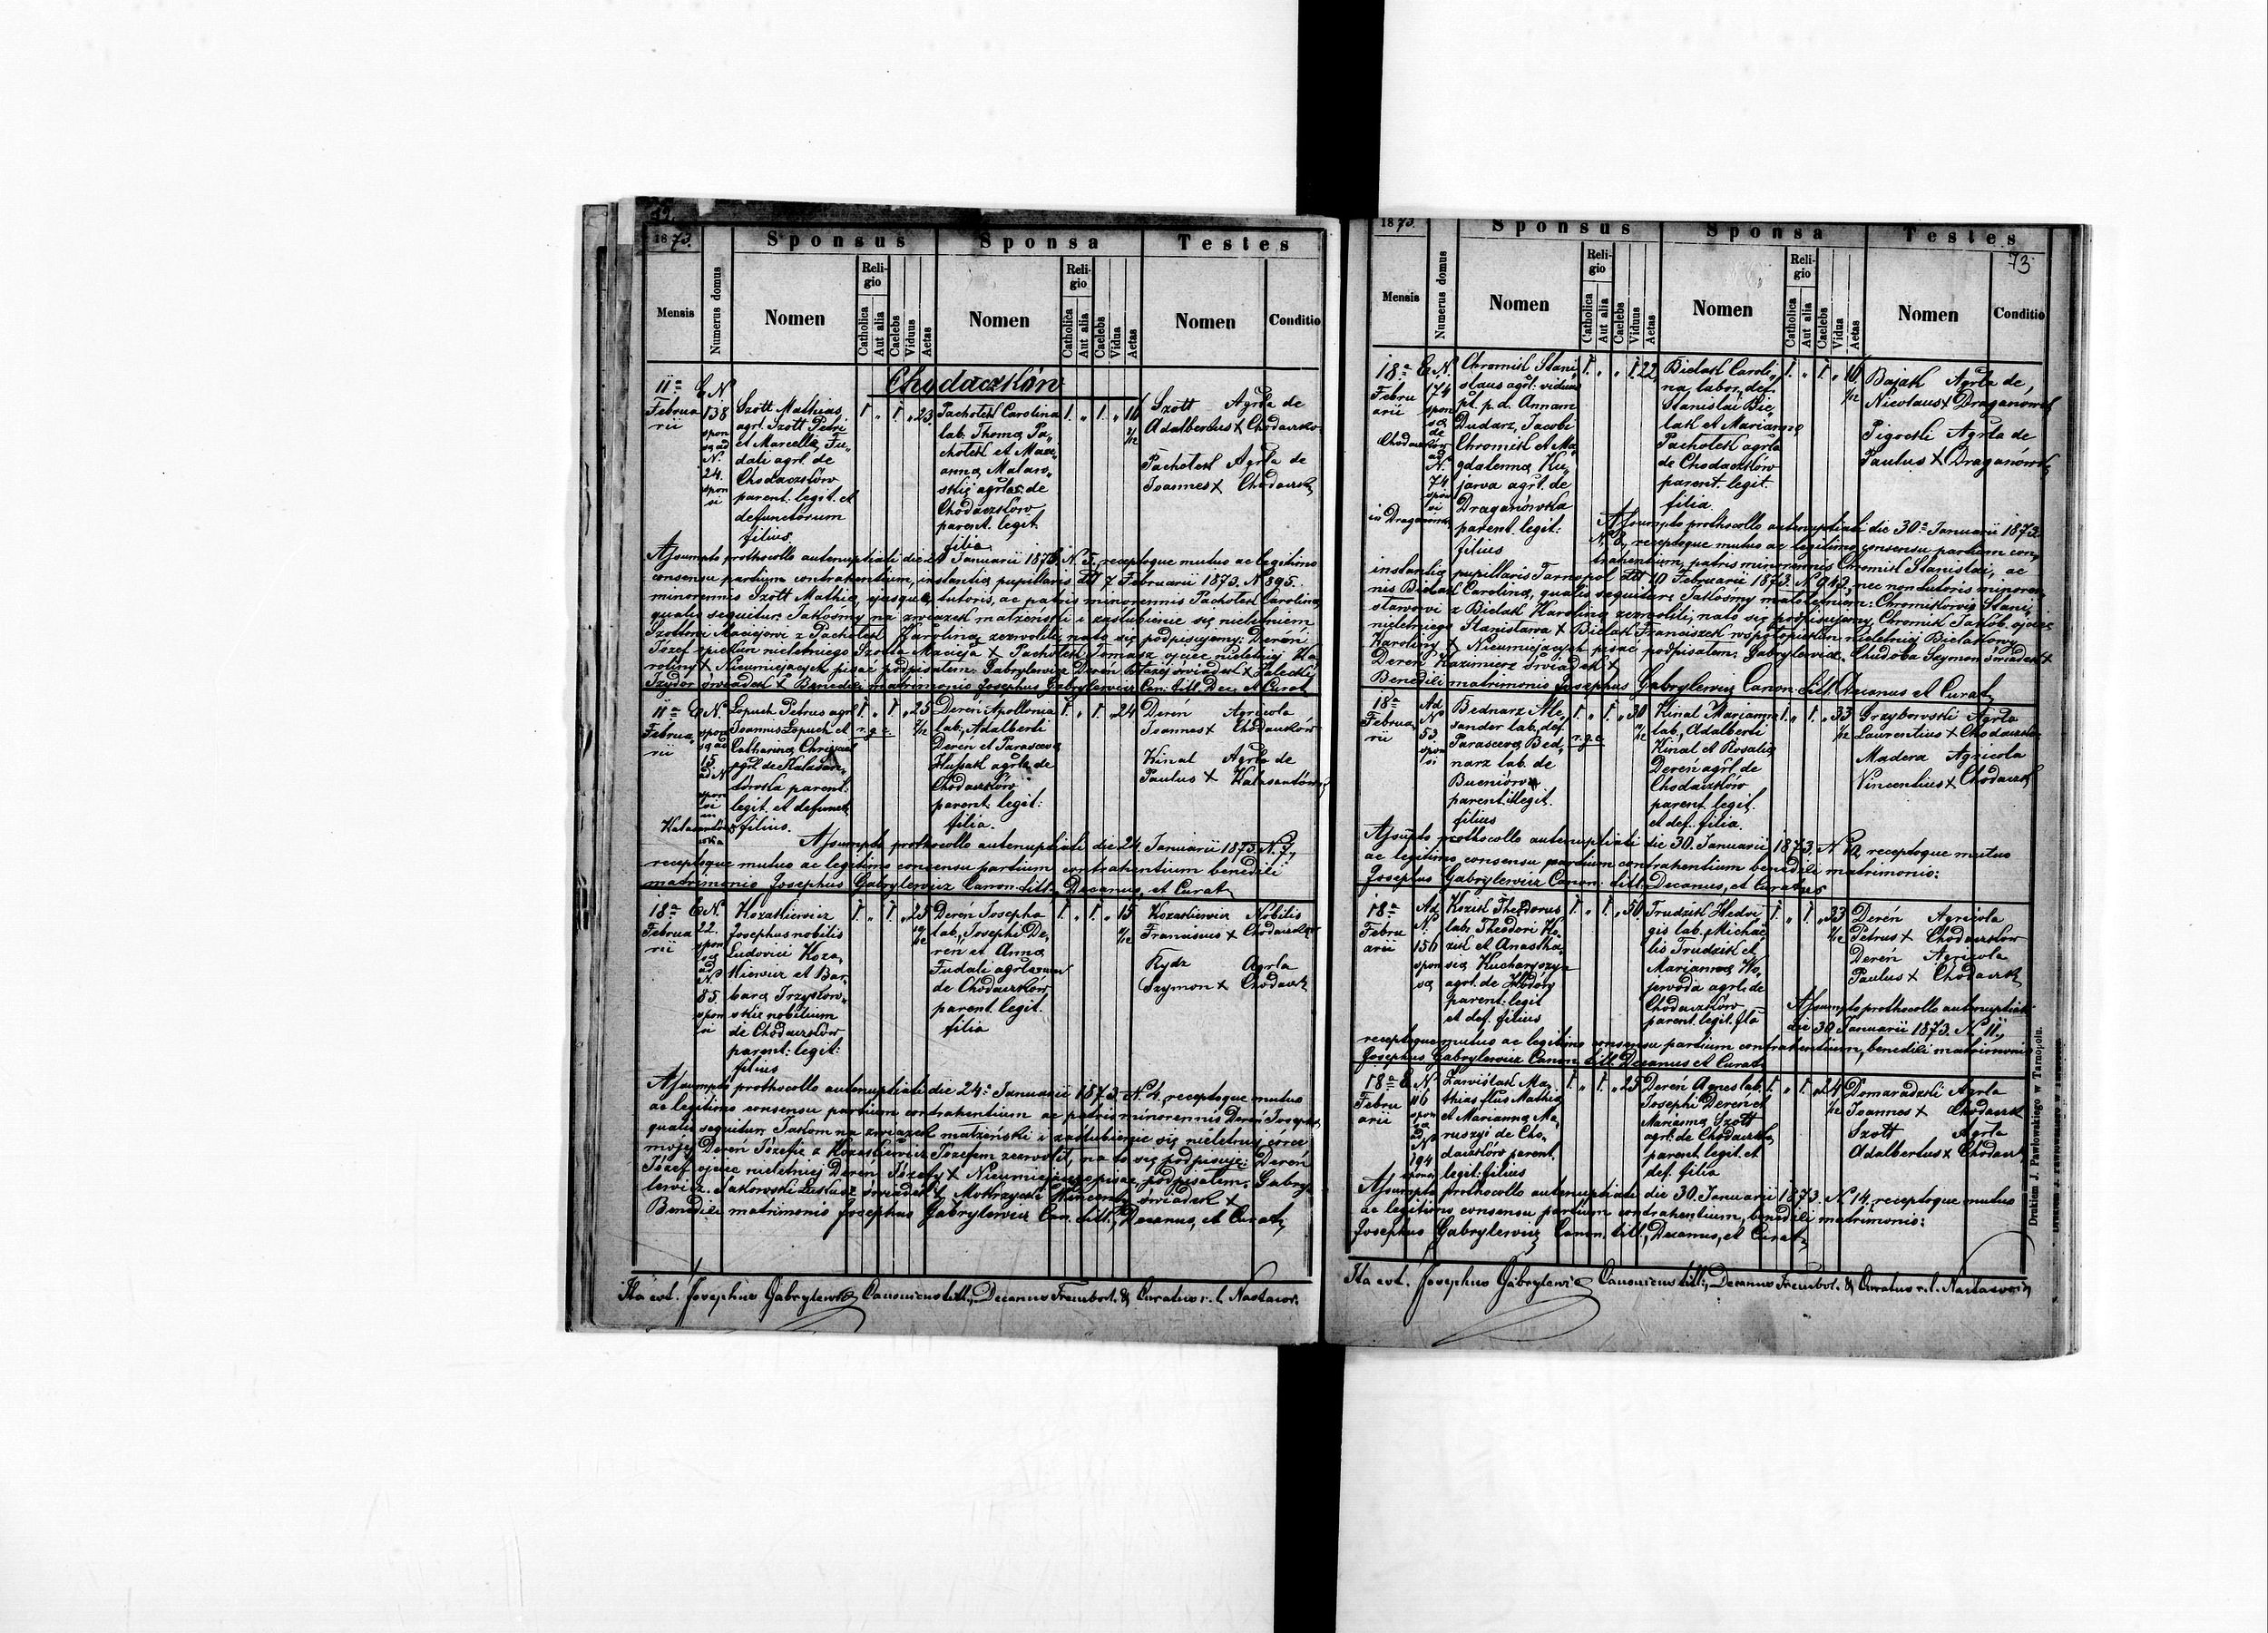 1873.
Sponsus Sponsa Testes
Mensis Numerus domus Nomen Religio Catholica Aut alia Caelebs Viduus Aetas Nomen Religio Catholica Aut alia Caelebs Vidua Aetas Nomen Conditio
Chodaczków
11a
Februa
rii
E N.
138
spon
sa ad
N.
24.
spon
si
Szott Mathias
agrl. Szott Petri
et Marcella Fu„
dali agrl. de
Chodaczków
parent. legit. et
defunctorum
filius.
1. „ 1. „ 23
Pachotek Carolina
lab. Thoma Pa„
chotek et Mari„
anna Malaw„
skie agrlae de
Chodaczków
parent. legit.
filia
1. „ 1. „ 16
Szott Agrla de
Adalbertus X Chodaczków
Pachotek Agrla de
Joannes X Chodaczk
Assumpto prothocollo antenuptiali die Januarii 1873. N. 5. receptoque mutuo ac legitimo
consensu partium contrahentium, instantia pupillaris dtt 7 Februarii 1873. N 895.
minorennis Szott Mathia, ejusque tutoris, ac patris minorennis Pachotek Carolina
qualis sequitur. Jakośmy na związek małżeński i zaślubienie się nieletniem
Szottowi Maciejowi z Pachotek Karoliną zezwolili, na to się podpisujemy: Dereń
Józef opiekun nieletniego Szotta Macieja X Pachotek Tomasz ojciec nieletniej Ka
roliny X Nieumiejących pisać podpisałem Gabrylewicz Dereń Błażej świadek X Zalecki
Izydor świadek X Benedixi matrimonio Josephus Gabrylewicz Can. titl. Dec. et Curat
11a
Februa
rii
E N.
spon
sa ad
15
ad N
spon
si
in
Lopuch Petrus agrl
Joannis Lopuch et
Catharina
agrl. de Kalasan„
tówka parent:
legit. et defunct.
filius.
1. „ 1. „ 25
r. g. c.
Dereń Apollonia
lab. Adalberti
Dereń et Parasceva
Husak agrla de
Chodaczków
parent. legit:
filia.
1. „ 1. „ 24
Dereń Agricola
Joannes X Chodaczków
Kinal Agrla de
Paulus X Kalasantów
Assumpto prothocollo antenuptiali die 24. Januarii 1873. N. 7,
receptoque mutuo ac legitimo consensu partium contrahentium benedixi
matrimonio Josephus Gabrylewicz Canon. titl. Decanus, et Curat
18a
Februa
rii
E N.
22.
spon
sa
ad
N.
85.
spon
si
Kozakiewicz
Josephus nobilis
Ludovici Koza„
kiewicz et Bar„
bara Trzyskow„
skie nobilium
de Chodaczków
parent: legit:
filius
1. „ 1. „ 25
Dereń Josepha
lab. Josephi De„
reń et Anna
Fudali agrlarum
de Chodaczków
parent. legit.
filia
1. „ 1. „ 15
Kozakiewicz Nobilis
Franciscus X Chodaczków
Kydz Agrla
Szymon X Chodaczk
Assumpto prothocollo antenuptiali die 24a Januarii 1873. N. 4, receptoque mutuo
ac legitimo consensu partium contrahentium ac patris minorennis Dereń Josepha
qualis sequitur. Jakom na związek małżeński i zaślubienie się nieletniej córce
mojej Dereń Józefie z Kozakiewicz Józefem zezwolił, na to się podpisuję: Dereń
Józef ojciec nieletniej Dereń Józefy X Nieumiejącego pisać podpisałem Gabry„
lewicz. Sakowski Łukasz świadek X Mokrzycki Wincenty świadek X
Benedixi matrimonio Josephus Gabrylewicz Can. titl., Decanus, et Curat
Ita est. Josephus Gabrylewicz Canonicus titl., Decanus Trembovl. & Curatus r. l. Nastasov.
1873.
73
Sponsus Sponsa Testes
Mensis Numerus domus Nomen Religio Catholica Aut alia Caelebs Viduus Aetas Nomen Religio Catholica Aut alia Caelebs Vidua Aetas Nomen Conditio
18a
Febru
arii
E N.
174
spon
sa
de
Chodaczków
ad
N.
74
spon
si
in Draganówka
Chromik Stani„
slaus agrl. viduus
pt. p. d. Annam
Dudarz, Jacobi
Chromik et Ma„
gdalenna Ku„
jawa agrl. de
Draganówka
parent. legit:
filius
1. „ „ 1. 22
Bielak Caroli„
na, labor. def.
Stanislai Bie„
lak et Marianna
Pachotek agrla
de Chodaczków
parent. legit.
filia.
1. „ 1. „ 16
Bajak Agrla de
Nicolaus X Draganówk
Pigocki Agrla de
Paulus X Draganówk
Assumpto prothocollo antenuptiali die 30a Januarii 1873.
N. 8, receptoque mutuo ac legitimo consensu partium con„
trahentium, patris minorennis Chromik Stanislai, ac
instantia pupillaris Tarnopol dtt 10 Februarii 1873. N 942, nec non tutoris minoren
nis Bielak Carolina, qualis sequitur: Jakośmy małoletniem: Chromikowi Stani„
sławowi z Bielak Karoliną zezwolili, na to się podpisujemy, Chromik Jakób ojciec
nieletniego Stanisława X Bielak Franciszek współopiekun nieletniej Bielakowy
Karoliny X Nieumiejących pisać podpisałem: Gabrylewicz. Chudoba Szymon świadek X
Dereń Kazimierz świadek X
Benedixi matrimonio Josephus Gabrylewicz Canon. titl. Decanus et Curat
18a
Februa
rii
Ad
N.
53.
spon
si
Bednarz Ale„
xander lab. def.
Parasceva Bed„
narz lab. de
Bueniówa
parent. illegit.
filius
1. „ 1. „ 30
r. g. c.
Kinal Marianna
lab. Adalberti
Kinal et Rosalia
Dereń agrl. de
Chodaczków
parent. legit.
et def. filia.
1. „ 1. „ 33
Grzyborwski Agrla
Laurentius X Chodaczk
Madera Agricola
Vincentius X Chodaczk
Assumpto prothocollo antenuptiali die 30. Januarii 1873. N 12, receptoque mutuo
ac legitimo consensu partium contrahentium benedixi matrimonio:
Josephus Gabrylewicz Canon. titl. Decanus, et Curatus
18a
Febru
arii
Ad
N.
156
spon
sa
Kozik Theodorus
lab. Theodori Ko„
zik et Anastha„
sia Kucharyszyn
agrl. de Hodów
parent: legit
et def. filius
1. „ 1. „ 50
Trudzik Hedvi„
gis lab. Michae„
lis Trudzik et
Marianna Ko„
jewoda agrl. de
Chodaczków
parent. legit. fla
1. „ 1. „ 33
Dereń Agricola
Petrus X Chodaczków
Dereń Agricola
Paulus X Chodaczk
Assumpto prothocollo antenuptiali
die 30 Januarii 1873. N. 11.,
receptoque mutuo ac legitimo consensu partium contrahentium, benedixi matrimonio
Josephus Gabrylewicz Canon. titl. Decanus et Curat
18a
Febru
arii
E. N.
116
spon
sa
ad
N
194
sponsi
Zawiślak Ma„
thias flus Mathia
et Marianna Ma„
ruszyi de Cho„
daczków parent.
legit: filius
1. „ 1. „ 25
Dereń Agnes lab.
Josephi Dereń et
Marianna Szott
agrl. de Chodaczków
parent. legit. et
def. filia
1. „ 1. „ 24
Domaradzki Agrla
Joannes X Chodaczk
Szott Agrla
Adalbertus X Chodacz
Assumpto prothocollo antenuptiali die 30. Januarii 1873. N. 14, receptoque mutuo
ac legitimo consensu partium contrahentium, benedixi matrimonio:
Josephus Gabrylewicz Canon. titl., Decanus, et Curat
Ita est. Josephus Gabrylewicz Canonicus titl., Decanus Trembovl. & Curatus r. l. Nastasov
Drukiem J. Pawłowskiego w Tarnopolu.